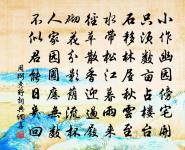 小作幽园傍宅开
只须数亩占楼台
石移林屋秋云
水带松江暮雨来
径草散香迎过
砌花分影荫流杯
人家园圃无数
不似君能日几回